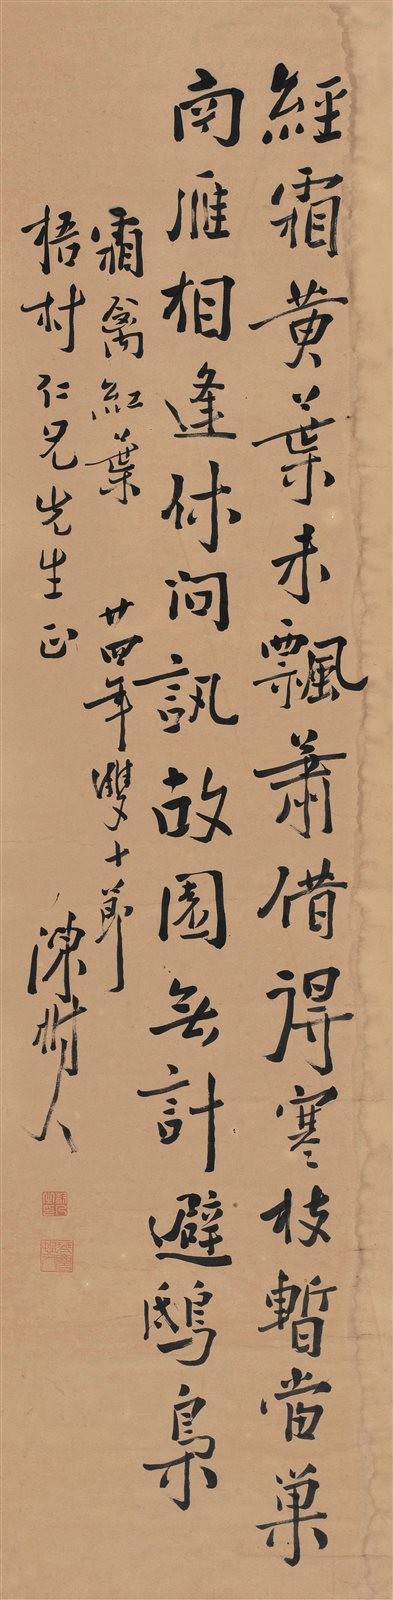 經霜黃葉未飄蕭借得寒枝暫當巢
南雁相逢休問訊故園無計避鴟梟
霜禽紅葉 廿四年雙十節
梧村仁兄先生正 陳樹人